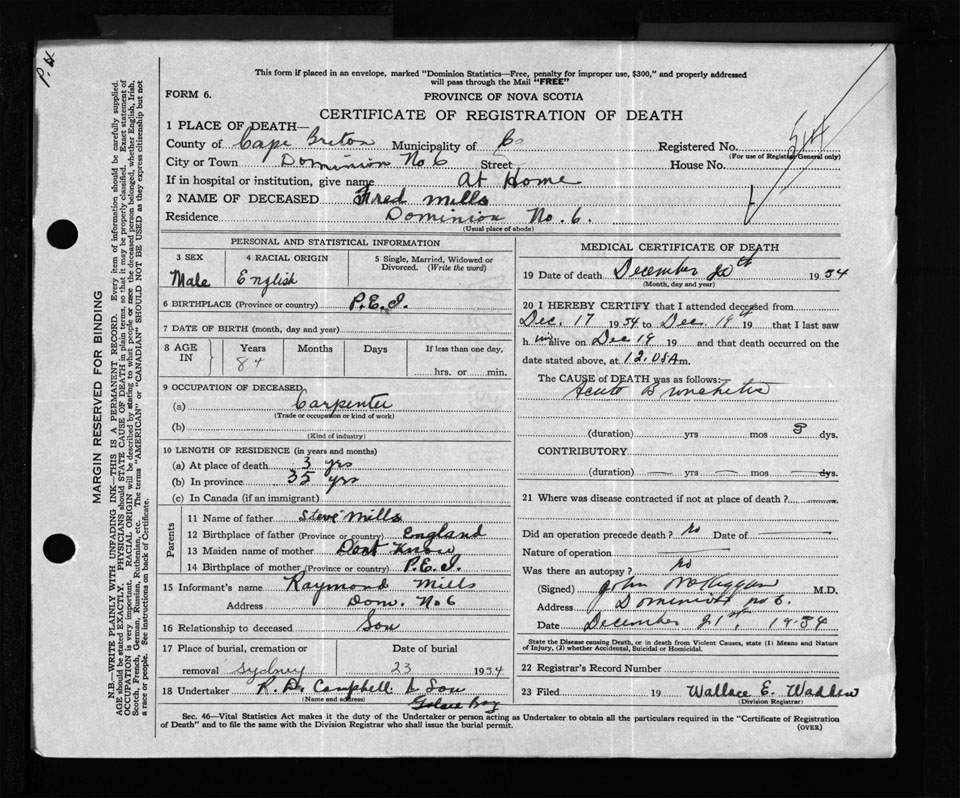 P. 4
This form if placed in an envelope, marked "Dominion Statistics—Free, penalty for improper use, $300," and properly addressed
will pass through the Mail "FREE"
FORM 6.
PROVINCE OF NOVA SCOTIA
CERTIFICATE OF REGISTRATION OF DEATH
1 PLACE OF DEATH—
County of Cape Breton Municipality of Registered No. 514
(For use of Registrar General only)
City or Town Dominion No 6 Street House No.
If in hospital or institution, give name At Home
2 NAME OF DECEASED Fred Mills
Residence Dominion No. 6.
(Usual place of abode)
PERSONAL AND STATISTICAL INFORMATION
3 SEX 4 RACIAL ORIGIN 5 Single, Married, Widowed or
Divorced. (Write the word)
Male English
6 BIRTHPLACE (Province or country) P.E.I.
7 DATE OF BIRTH (month, day and year)
8 AGE IN Years Months Days If less than one day,
84 hrs. or min.
9 OCCUPATION OF DECEASED
(a) Carpenter
(Trade or occupation or kind of work)
(b)
(Kind of industry)
10 LENGTH OF RESIDENCE (in years and months)
(a) At place of death 3 yrs
(b) In province 35 yrs
(c) In Canada (if an immigrant)
Parents
11 Name of father Steve Mills
12 Birthplace of father (Province or country) England
13 Maiden name of mother Dont Know
14 Birthplace of mother (Province or country) P.E.I.
15 Informant's name Raymond Mills
Address Dom. No 6
16 Relationship to deceased Son
17 Place of burial, cremation or Date of burial
removal Sydney 23 1934
18 Undertaker R. D. Campbell & Son
(Name and address)
Glace Bay
MEDICAL CERTIFICATE OF DEATH
19 Date of death December 20th 1934
(Month, day and year)
20 I HEREBY CERTIFY that I attended deceased from
Dec. 17 1934 to Dec. 19th 19 that I last saw
him alive on Dec 19 19 and that death occurred on the
date stated above, at 12.05 A m.
The CAUSE OF DEATH was as follows:
Acute Bronchitis
(duration) yrs mos 3 dys.
CONTRIBUTORY
(duration) — yrs — mos — dys.
21 Where was disease contracted if not at place of death?
Did an operation precede death? no Date of
Nature of operation
Was there an autopsy? no
(Signed) John M.D.
Address Dominion No 6.
Date December 21st, 1934
State the Disease causing Death, or in death from Violent Causes, state (1) Means and Nature
of Injury, (2) whether Accidental, Suicidal or Homicidal.
22 Registrar's Record Number
23 Filed 19 Wallace E. Wadden
(Division Registrar)
Sec. 46—Vital Statistics Act makes it the duty of the Undertaker or person acting as Undertaker to obtain all the particulars required in the "Certificate of Registration
of Death" and to file the same with the Division Registrar who shall issue the burial permit.
(OVER)
MARGIN RESERVED FOR BINDING
N.B.—WRITE PLAINLY WITH UNFADING INK—THIS IS A PERMANENT RECORD. Every item of information should be carefully supplied.
AGE should be stated EXACTLY. PHYSICIANS should STATE CAUSE OF DEATH in plain terms, so that it may be properly classified. Exact statement of
OCCUPATION is very important. RACIAL ORIGIN will be described by stating to what people or race the deceased person belonged, whether English, Irish,
Scotch, French, German, Russian, Ruthenian, etc. The terms "AMERICAN" or "CANADIAN" SHOULD NOT BE USED as they express citizenship but not
a race or people. See instructions on back of Certificate.